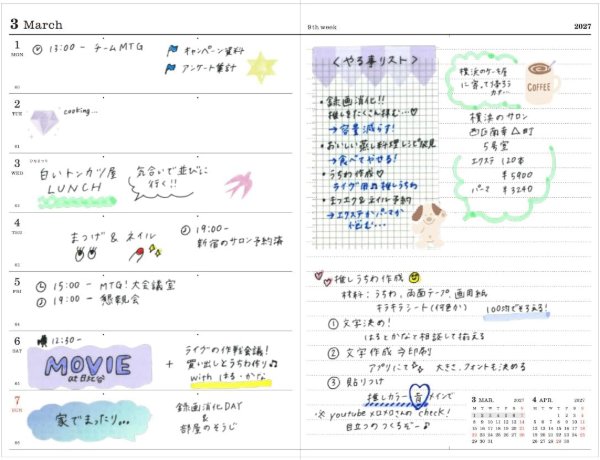 3 March
1 MON
13:00- チームMTG
キャンペーン資料
アンケート集計
2 TUE
cooking...
3 WED
白いトンカツ屋
LUNCH
気合いで並びに
行く!!
4 THU
まつげ & ネイル
19:00-
新宿のサロン予約済
5 FRI
15:00- MTG! 大会議室
19:00- 懇親会
6 SAT
12:30-
MOVIE
at 日比谷
+
ライブの作戦会議!
買い出しとうちわ作り♫
with はる・かな
7 SUN
家でまったり...
録画消化DAY
&
部屋のそうじ
9th week
2027
<やる事リスト>
・録画消化!!
推しをたくさん拝む…♡
→容量減らす!
・おいしい蒸し料理レシピ発見
→食べてやせる!
・うちわ作り♡
ライブ用♫推しうちわ
・まつエク&ネイル予約
→エクステかパーマか
悩む…
横浜のケーキ屋
に寄って帰ろう
カナ…
COFFEE
横浜のサロン
西区南幸△町
5号室
エクステ 120本
¥5900
パーマ ¥3240
推しうちわ作成
材料:うちわ、両面テープ、画用紙
キラキラシート(何色か)
100均でそろえる!
① 文字決め!
はるとかなと相談して揃える
② 文字作成 今印刷
アプリにて 大きさ、フォントも決める
③ 貼りつけ
推しカラー 青 メインで
※youtube xoxoさんの check!
目立つのつくるぞー♪
3 MAR. 2027
M T W T F S S
1 2 3 4 5 6 7
8 9 10 11 12 13 14
15 16 17 18 19 20 21
22 23 24 25 26 27 28
29 30 31
4 APR. 2027
M T W T F S S
1 2 3 4
5 6 7 8 9 10 11
12 13 14 15 16 17 18
19 20 21 22 23 24 25
26 27 28 29 30